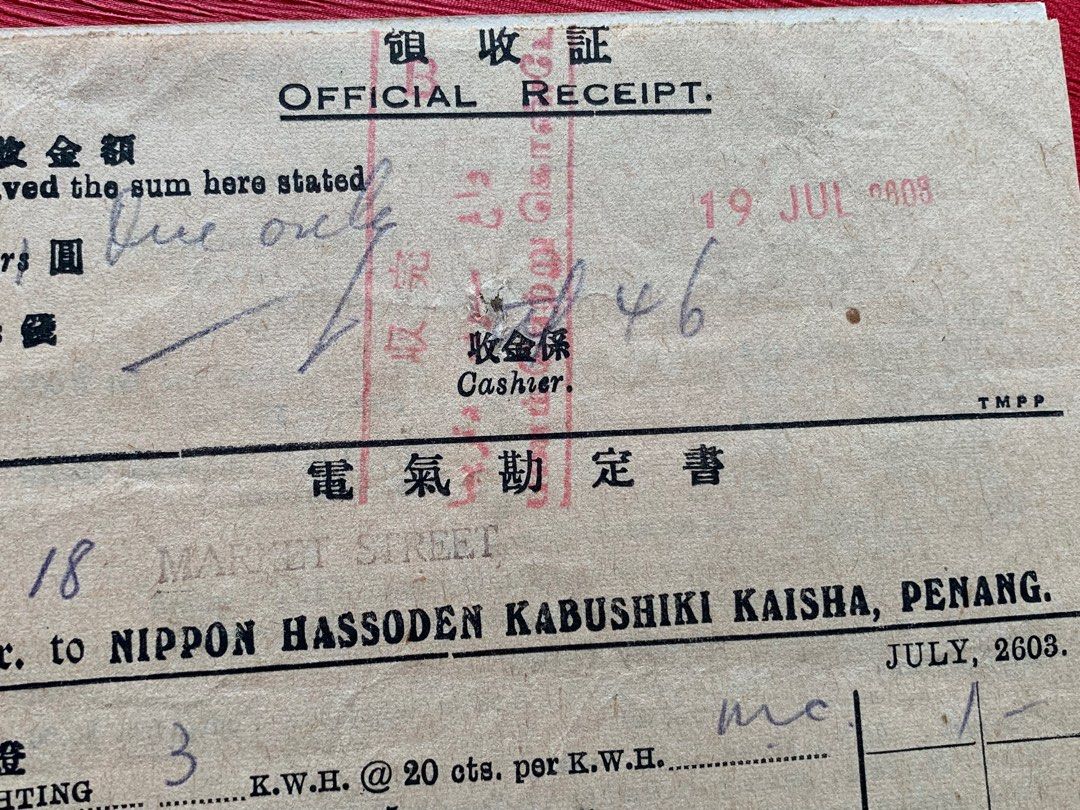 領収証
OFFICIAL RECEIPT.
收金額
ved the sum here stated
19 JUL 2603
rs 圓 One only
46
收完
收金係
Cashier.
TMPP
電氣勘定書
18 MARKET STREET,
r. to NIPPON HASSODEN KABUSHIKI KAISHA, PENANG.
JULY, 2603.
HTING 3 K.W.H. @ 20 cts. per K.W.H. mc. 1 -